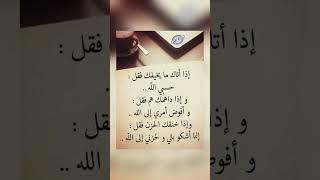 إذا أتاك ما يخيفك فقل :
حسبي الله ..
و إذا داهمك هم فقل :
و أفوض أمري إلى الله ..
وإذا خنقك الحزن فقل :
إنما أشكو بثي و حزني إلى الله ..